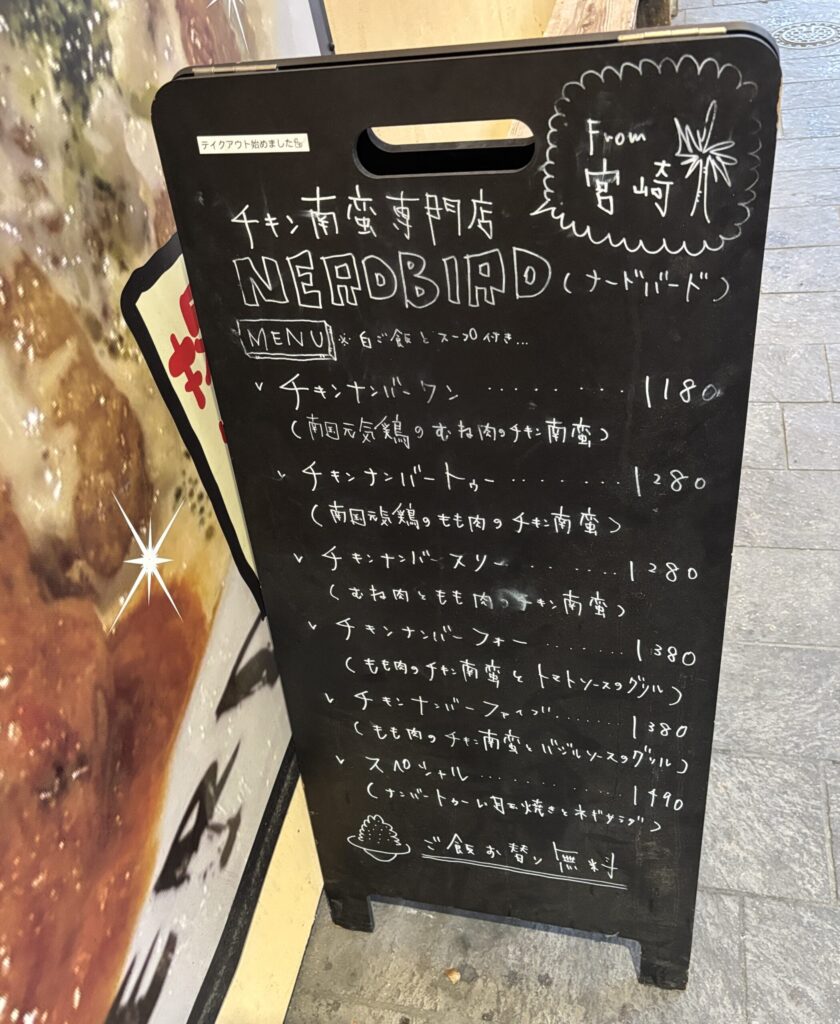 テイクアウト始めました
From
宮崎
チキン南蛮専門店
NERDBIRD (ナードバード)
MENU ※白ご飯とスープ付き...
✓ チキンナンバーワン ........ 1180
(南国元気鶏のむね肉のチキン南蛮)
✓ チキンナンバートゥー ........ 1280
(南国元気鶏のもも肉のチキン南蛮)
✓ チキンナンバースリー ........ 1280
(むね肉ともも肉のチキン南蛮)
✓ チキンナンバーフォー ........ 1380
(もも肉のチキン南蛮とトマトソースのグリル)
✓ チキンナンバーファイブ ....... 1380
(もも肉のチキン南蛮とバジルソースのグリル)
✓ スペシャル ............ 1490
(ナンバートゥーに目玉焼きとネギサラダ)
ご飯お替り無料